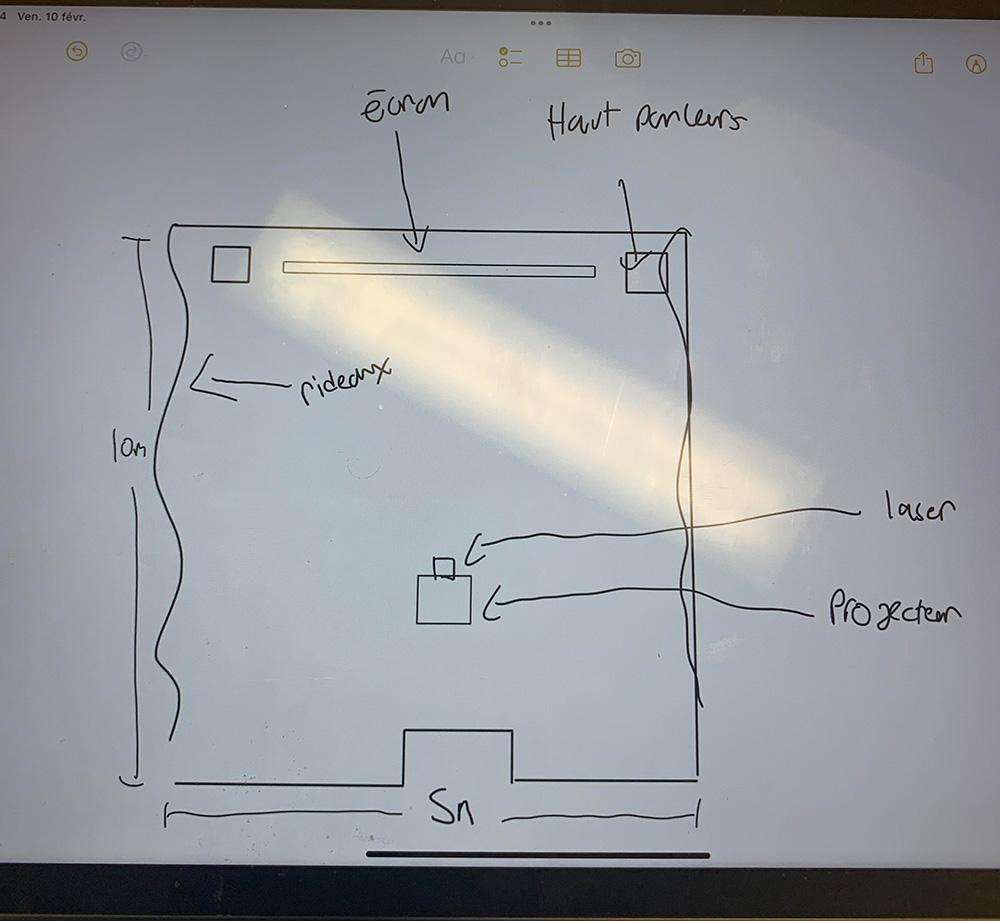 4 Ven. 10 févr.
Aa
écran
Haut parleurs
rideaux
10m
laser
Projecteur
5m